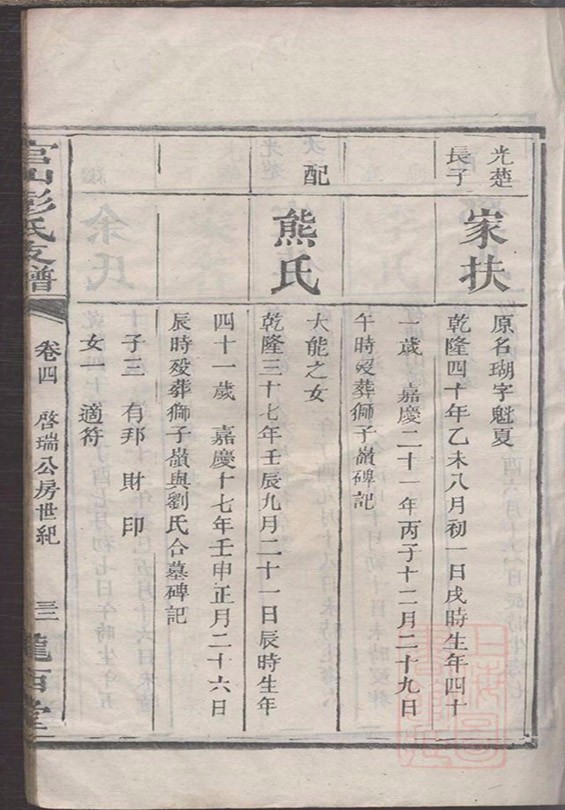 光楚
長子
家扶
原名瑚字魁夏
乾隆四十年乙未八月初一日戌時生年四十
一歲 嘉慶二十一年丙子十二月二十九日
午時歿葬獅子嶺碑記
配
熊氏
大能之女
乾隆三十七年壬辰九月二十一日辰時生年
四十一歲 嘉慶十七年壬申正月二十六日
辰時歿葬獅子嶺與劉氏合墓碑記
子三 有邦 財 印
女一 適符
官山彭氏支譜
卷四 啓瑞公房世紀
三
隴西堂